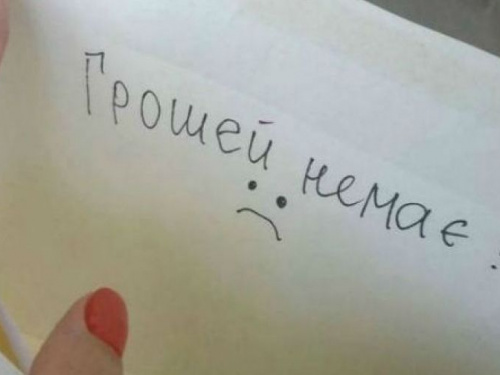 Грошей немає.